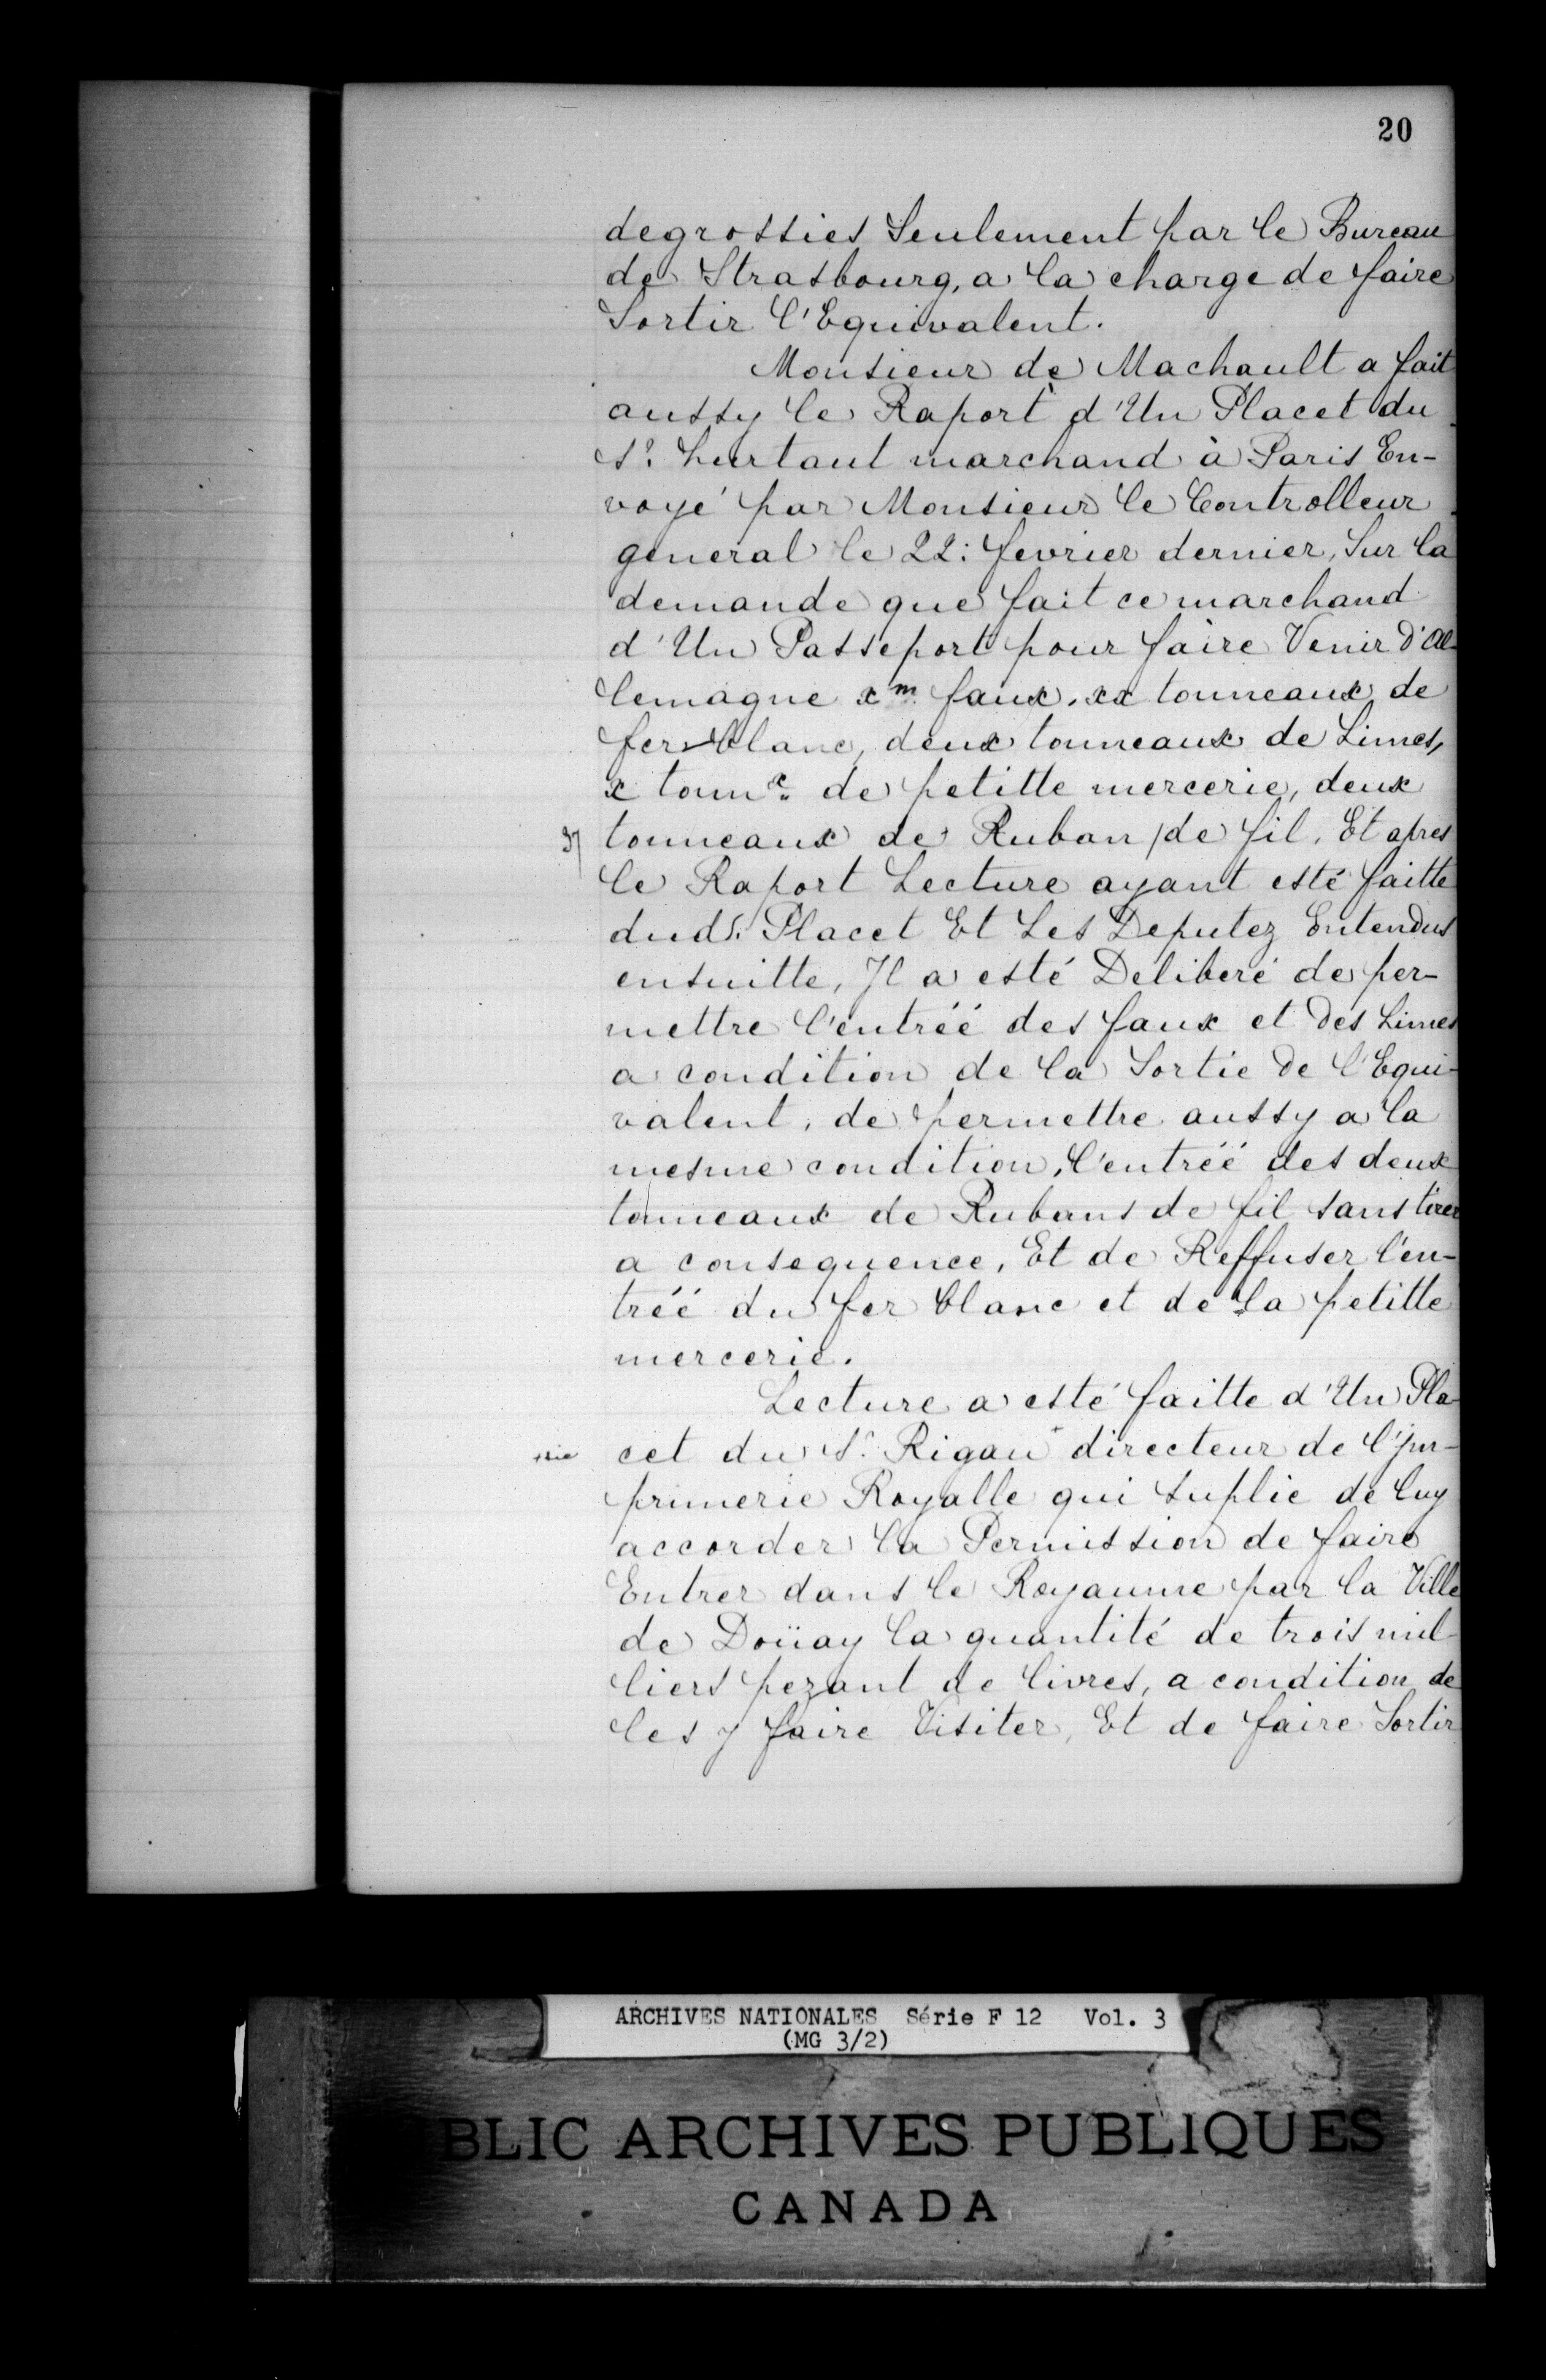 20
degrossies Seulement par le Bureau
de Strasbourg, a la charge de faire
Sortir l'Equivalent.
Monsieur de Machault a fait
aussy le Raport d'Un Placet du
Sr. hurtaut marchand à Paris En-
voyé par Monsieur le Controlleur
general le 22: fevrier dernier, Sur la
demande que fait ce marchand
d'Un Passeport pour faire Venir d'Al
lemagne xm. faux, xx tonneaux de
fer-blanc, deux tonneaux de Limes,
x tonnx. de petitte mercerie, deux
37 tonneaux de Ruban /de fil. Et apres
le Raport Lecture ayant esté faitte
dudt. Placet Et Les Deputez Entendus
ensuitte, Il a esté Deliberé de per-
mettre l'entréé des faux et des Limes
a condition de la Sortie de l'Equi-
valent, de permettre aussy a la
mesme condition, l'entréé des deux
tonneaux de Rubans de fil sans tirer
a consequence, Et de Reffuser l'en-
tréé du fer blanc et de la petitte
mercerie.
Lecture a esté faitte d'Un Pla-
+sic cet du Sr. Rigau+ directeur de l'jm-
primerie Royalle qui suplie de luy
accorder la Permission de faire
Entrer dans le Royaume par la Ville
de Doüay la quantité de trois mil-
liers pezant de livres, a condition de
les y faire Visiter, Et de faire Sortir
ARCHIVES NATIONALES Série F 12 Vol. 3
(MG 3/2)
BLIC ARCHIVES PUBLIQUES
CANADA